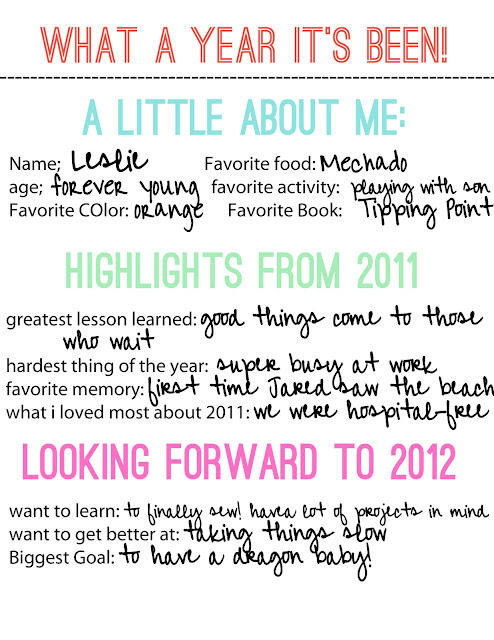 WHAT A YEAR IT'S BEEN!
A LITTLE ABOUT ME:
Name; Leslie Favorite food: Mechado
age; forever young favorite activity: playing with son
Favorite COlor: orange Favorite Book: Tipping Point
HIGHLIGHTS FROM 2011
greatest lesson learned: good things come to those
who wait
hardest thing of the year: super busy at work
favorite memory: first time Jared saw the beach
what i loved most about 2011: we were hospital-free
LOOKING FORWARD TO 2012
want to learn: to finally sew! have a lot of projects in mind
want to get better at: taking things slow
Biggest Goal: to have a dragon baby!